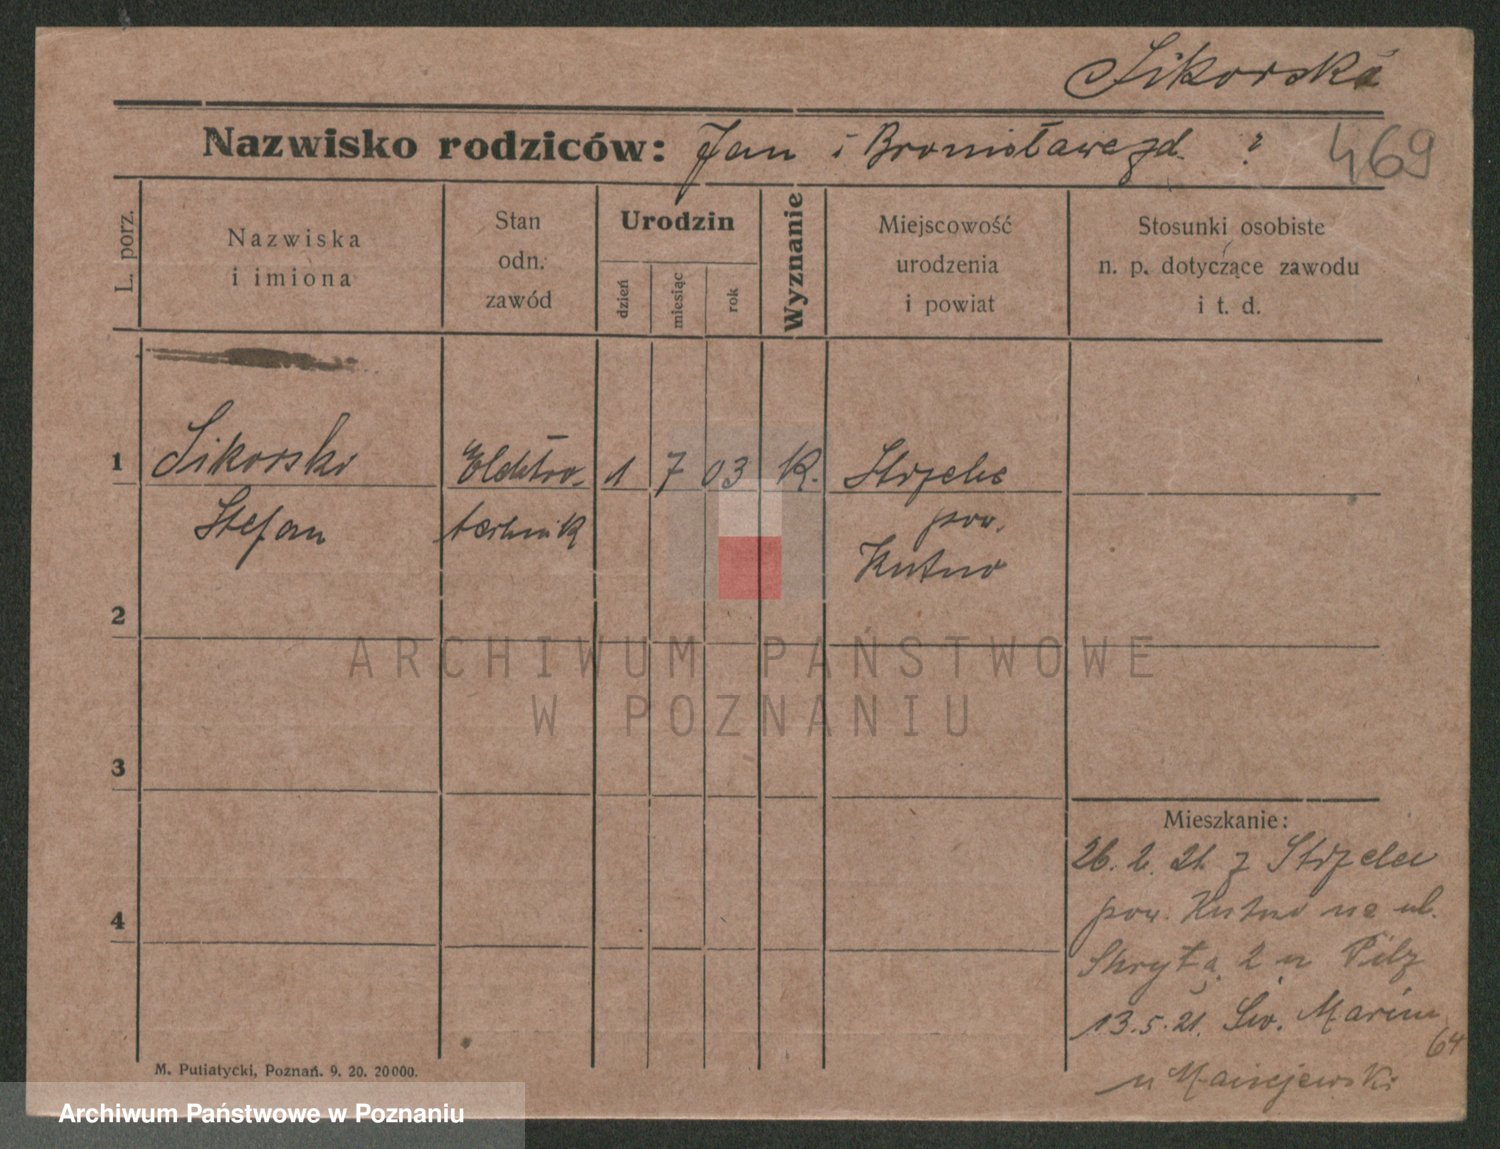 Sikorska
Nazwisko rodziców: Jan i Bronisława zd. ?
469
L. porz.
Nazwiska
i imiona
Stan
odn.
zawód
Urodzin
dzień
miesiąc
rok
Wyznanie
Miejscowość
urodzenia
i powiat
Stosunki osobiste
n. p. dotyczące zawodu
i t. d.
1 Sikorski Elektro- 1 7 03 K. Strzelce
Stefan technik pow.
Kutno
2
3
4
Mieszkanie:
26. 2. 21. z Strzelce
pow. Kutno na ul.
Skryta 2 u Pilz
13. 5. 21. Św. Marcin
64
u Maciejewski
M. Putiatycki, Poznań. 9. 20. 20000.
ARCHIWUM PAŃSTWOWE
W POZNANIU
Archiwum Państwowe w Poznaniu